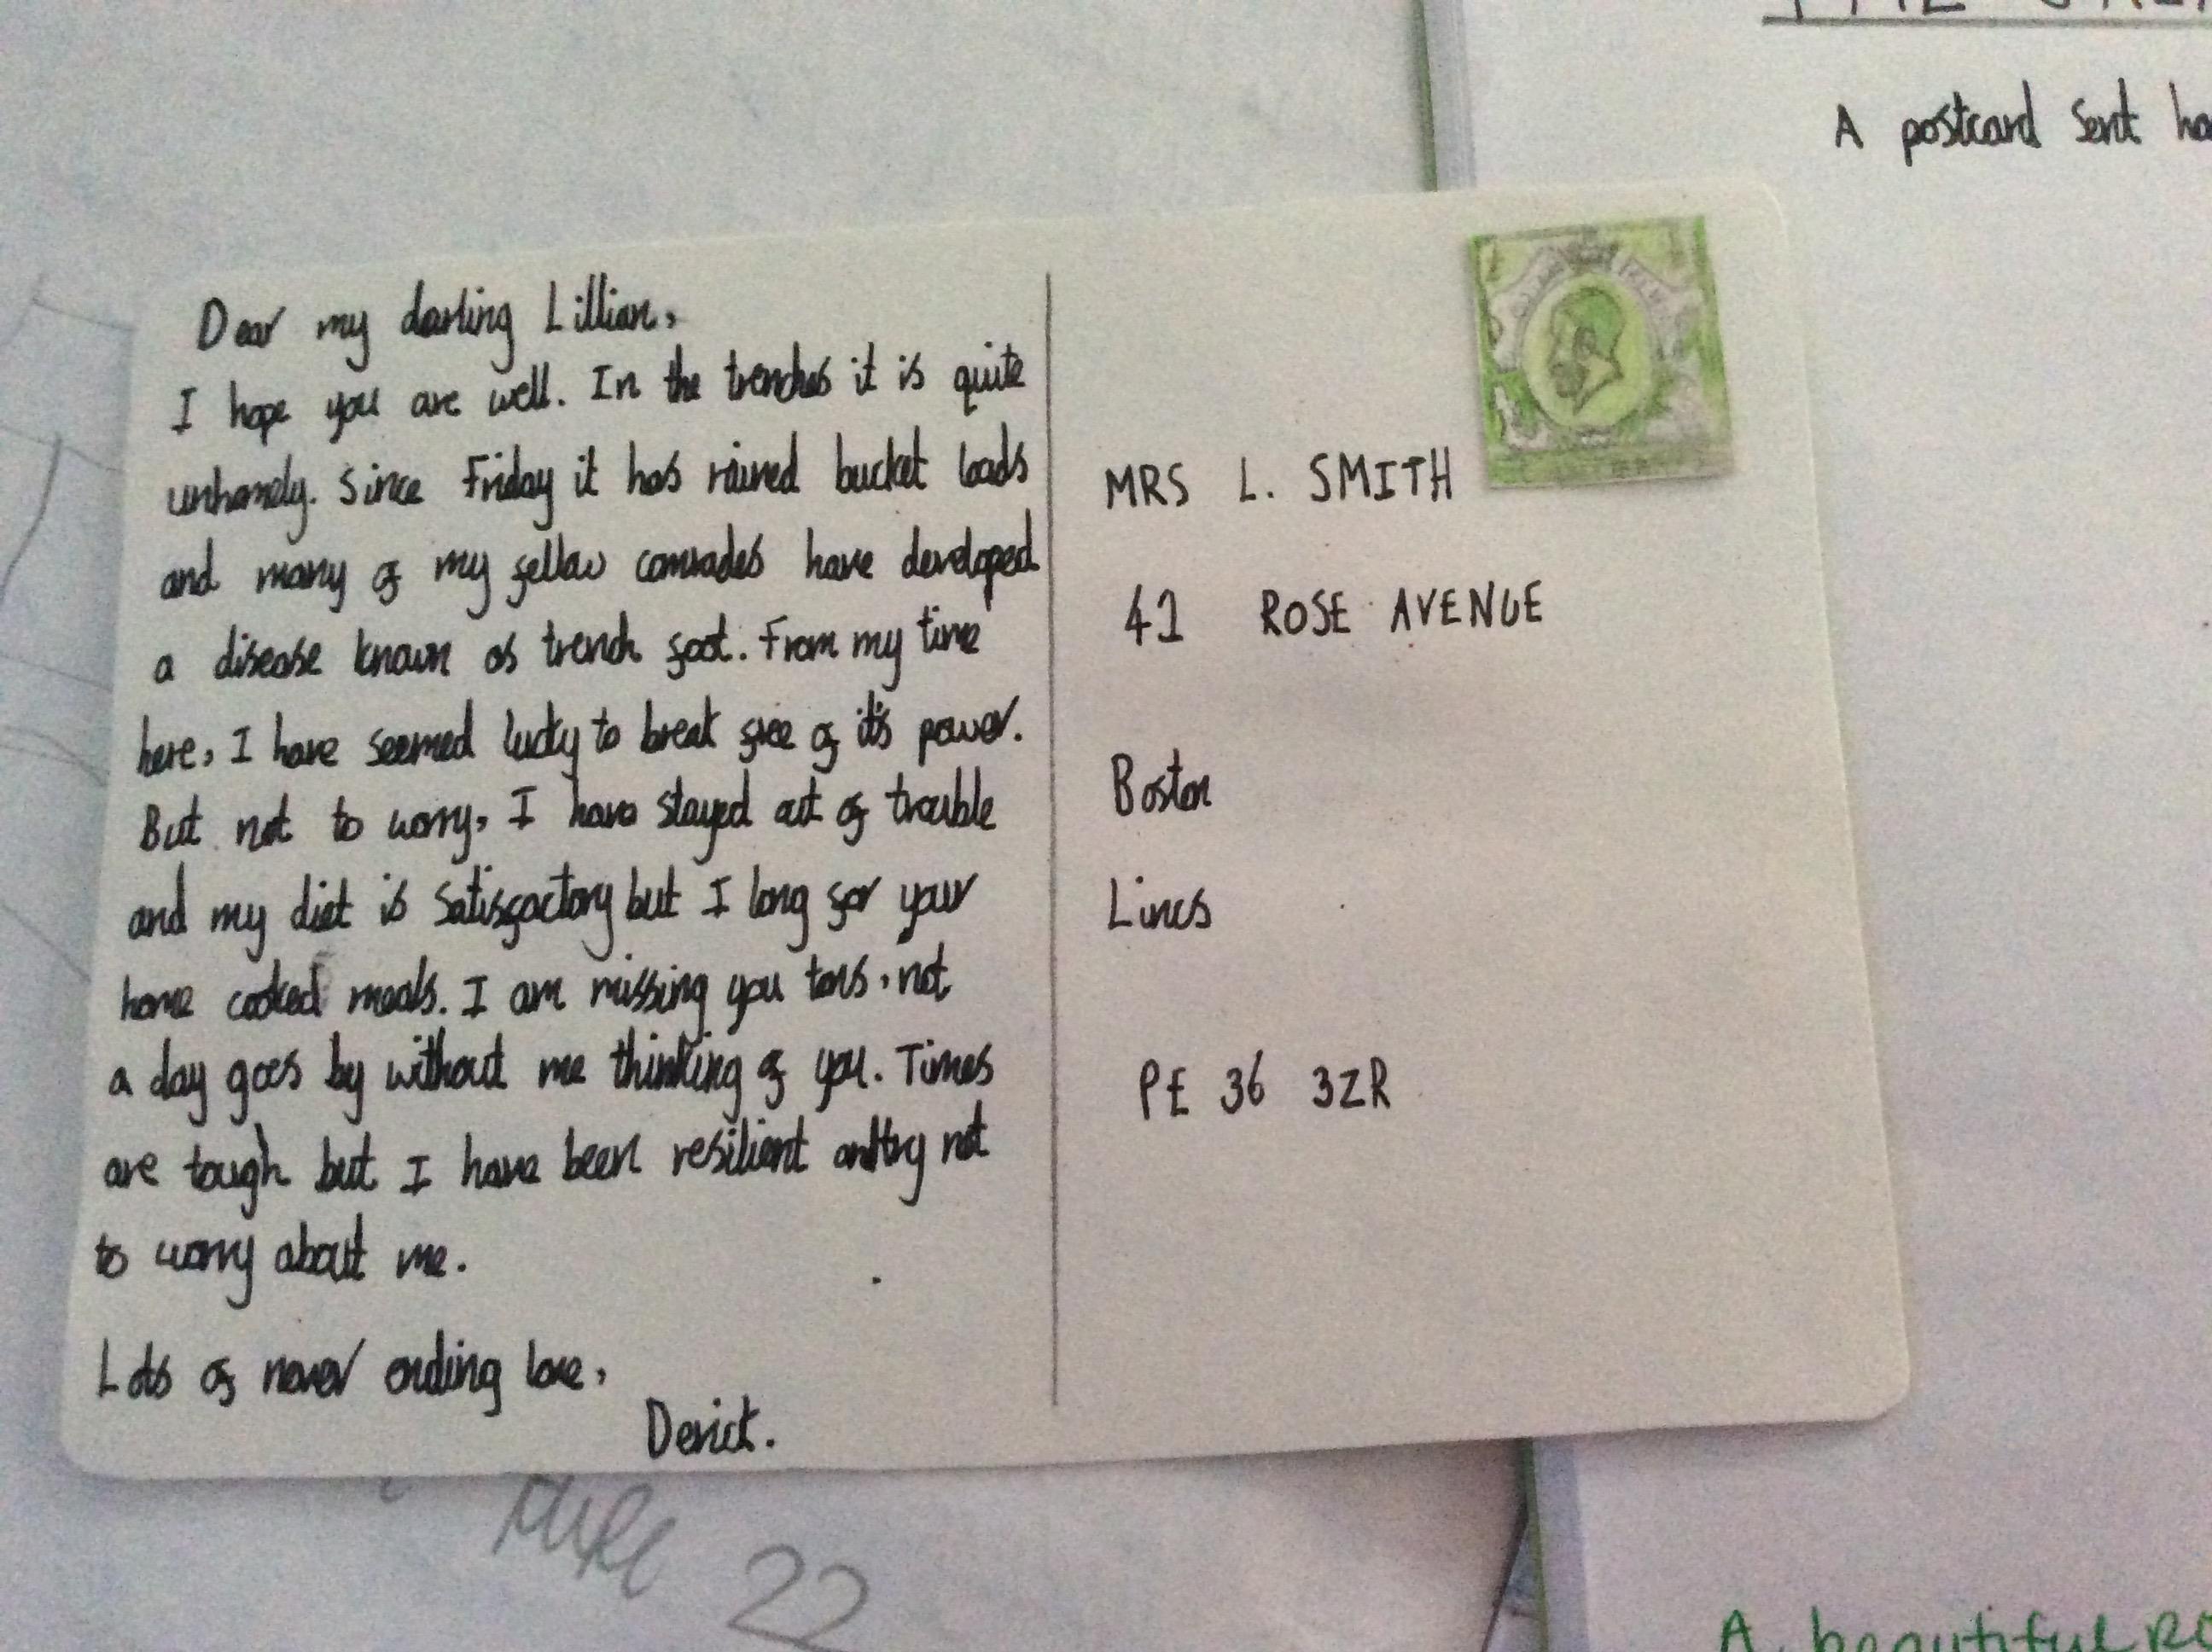 A postcard sent
Dear my darling Lillian,
I hope you are well. In the trenches it is quite
unhomely. Since Friday it has rained bucket loads
and many of my fellow comrades have developed
a disease known as trench foot. From my time
here, I have seemed lucky to break free of it's power.
But not to worry, I have stayed out of trouble
and my diet is satisfactory but I long for your
home cooked meals. I am missing you tons, not
a day goes by without me thinking of you. Times
are tough but I have been resilient and try not
to worry about me.
Lots of never ending love,
Derick.
MRS L. SMITH
41 ROSE AVENUE
Boston
Lincs
PE 36 3ZR
22
A beautiful